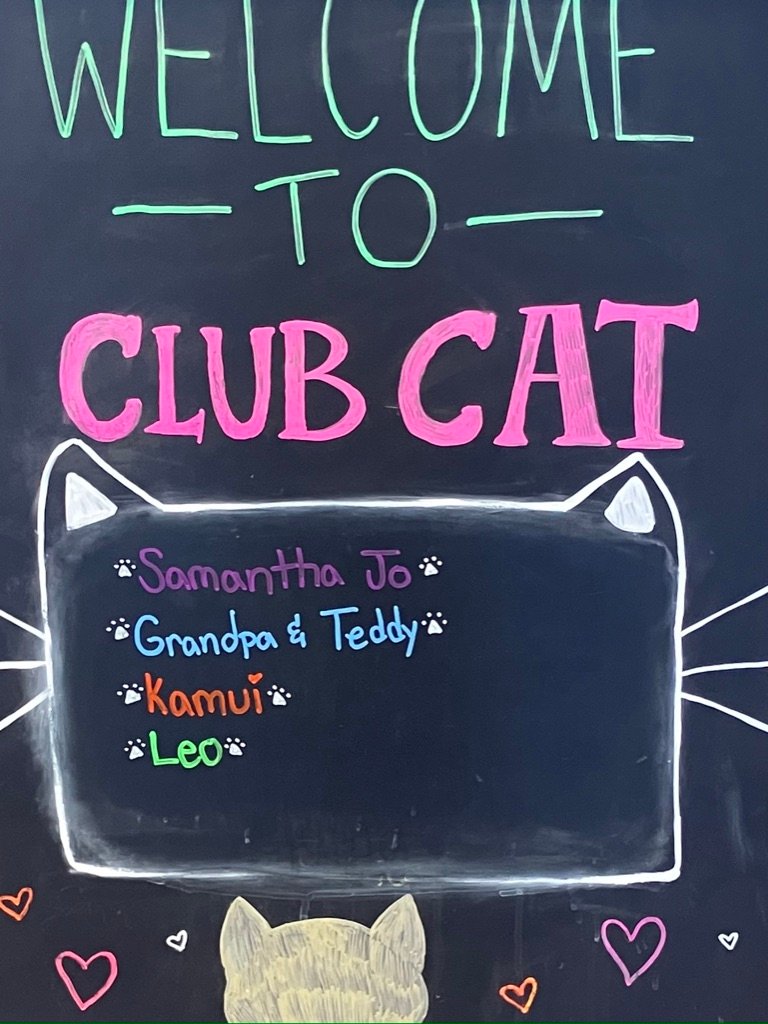 WELCOME
— TO —
CLUB CAT
Samantha Jo
Grandpa & Teddy
Kamui
Leo